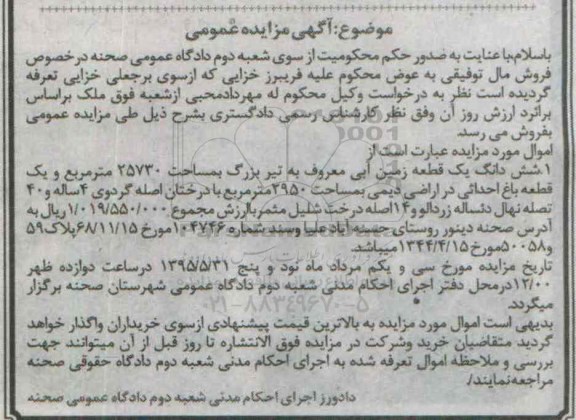 موضوع:آگهی مزایده عمومی
باسلام،با عنایت به صدور حکم محکومیت از سوی شعبه دوم دادگاه عمومی صحنه درخصوص
فروش مال توقیفی به عوض محکوم علیه فریبرز خزایی که ازسوی برجعلی خزایی تعرفه
گردیده است نظر به درخواست وکیل محکوم له مهردادمحبی ازشعبه فوق ملک براساس
برآئرد ارزش روز آن وفق نظر کارشناس رسمی دادگستری بشرح ذیل طی مزایده عمومی
بفروش می رسد.
اموال مورد مزایده عبارت است از
۱.شش دانگ یک قطعه زمین آبی معروف به تیر بزرگ بمساحت ۲۵۷۳۰ مترمربع و یک
قطعه باغ احداثی در اراضی دیمی بمساحت ۲۹۵۰مترمربع با درختان اصله گردوی ۴ساله و۴۰
تصله نهال دئساله زردآلو و۱۴اصله درخت شلیل مثمر باارزش مجموع ۱/۰۱۹/۵۵۰/۰۰۰ریال به
آدرس صحنه دینور روستای حسینه آباد علیا وسند شماره ۱۰۴۷۴۶مورخ ۶۸/۱۱/۱۵پلاک۵۹
و۵۰۰۵۸مورخ۱۳۴۴/۴/۱۵میباشد.
تاریخ مزایده مورخ سی و یکم مرداد ماه نود و پنج ۱۳۹۵/۵/۳۱ درساعت دوازده ظهر
۱۲/۰۰درمحل دفتر اجرای احکام مدنی شعبه دوم دادگاه عمومی شهرستان صحنه برگزار
میگردد.
بدیهی است اموال مورد مزایده به بالاترین قیمت پیشنهادی ازسوی خریداران واگذار خواهد
گردید متقاضیان خرید وشرکت در مزایده فوق الانتشاره تا روز قبل از آن میتوانند جهت
بررسی و ملاحظه اموال تعرفه شده به اجرای احکام مدنی شعبه دوم دادگاه حقوقی صحنه
مراجعه نمایند/.
دادورز اجرای احکام مدنی شعبه دوم دادگاه عمومی صحنه
۰۲۱-۸۸۳۴۹۶۷۰-۵